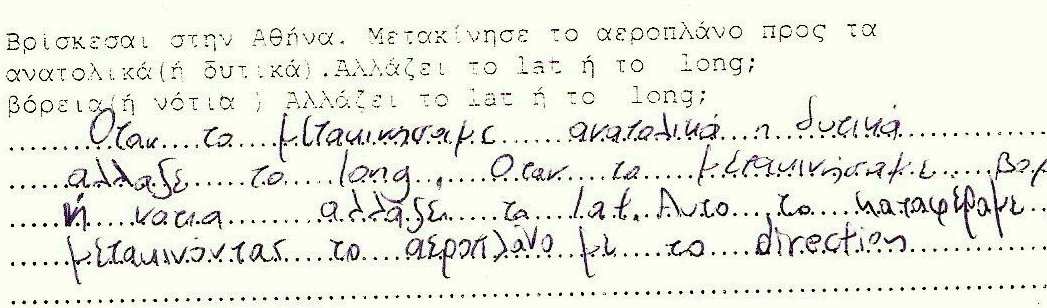 Βρίσκεσαι στην Αθήνα. Μετακίνησε το αεροπλάνο προς τα
ανατολικά(ή δυτικά).Αλλάζει το lat ή το long;
βόρεια(ή νότια ) Αλλάζει το lat ή το long;
Οταν το μετακινησαμε ανατολικά η δυτικά
αλλαξε το long. Οταν το μετακινήσαμε βορ
ή νοτια αλλάξε το lat. Αυτο το καταφέραμε
μετακινόντας το αεροπλάνο με το direction